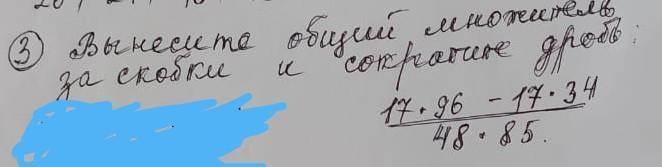 ③ Вынесите общий множитель
за скобки и сократите дробь:
17 · 96 - 17 · 34
48 · 85.